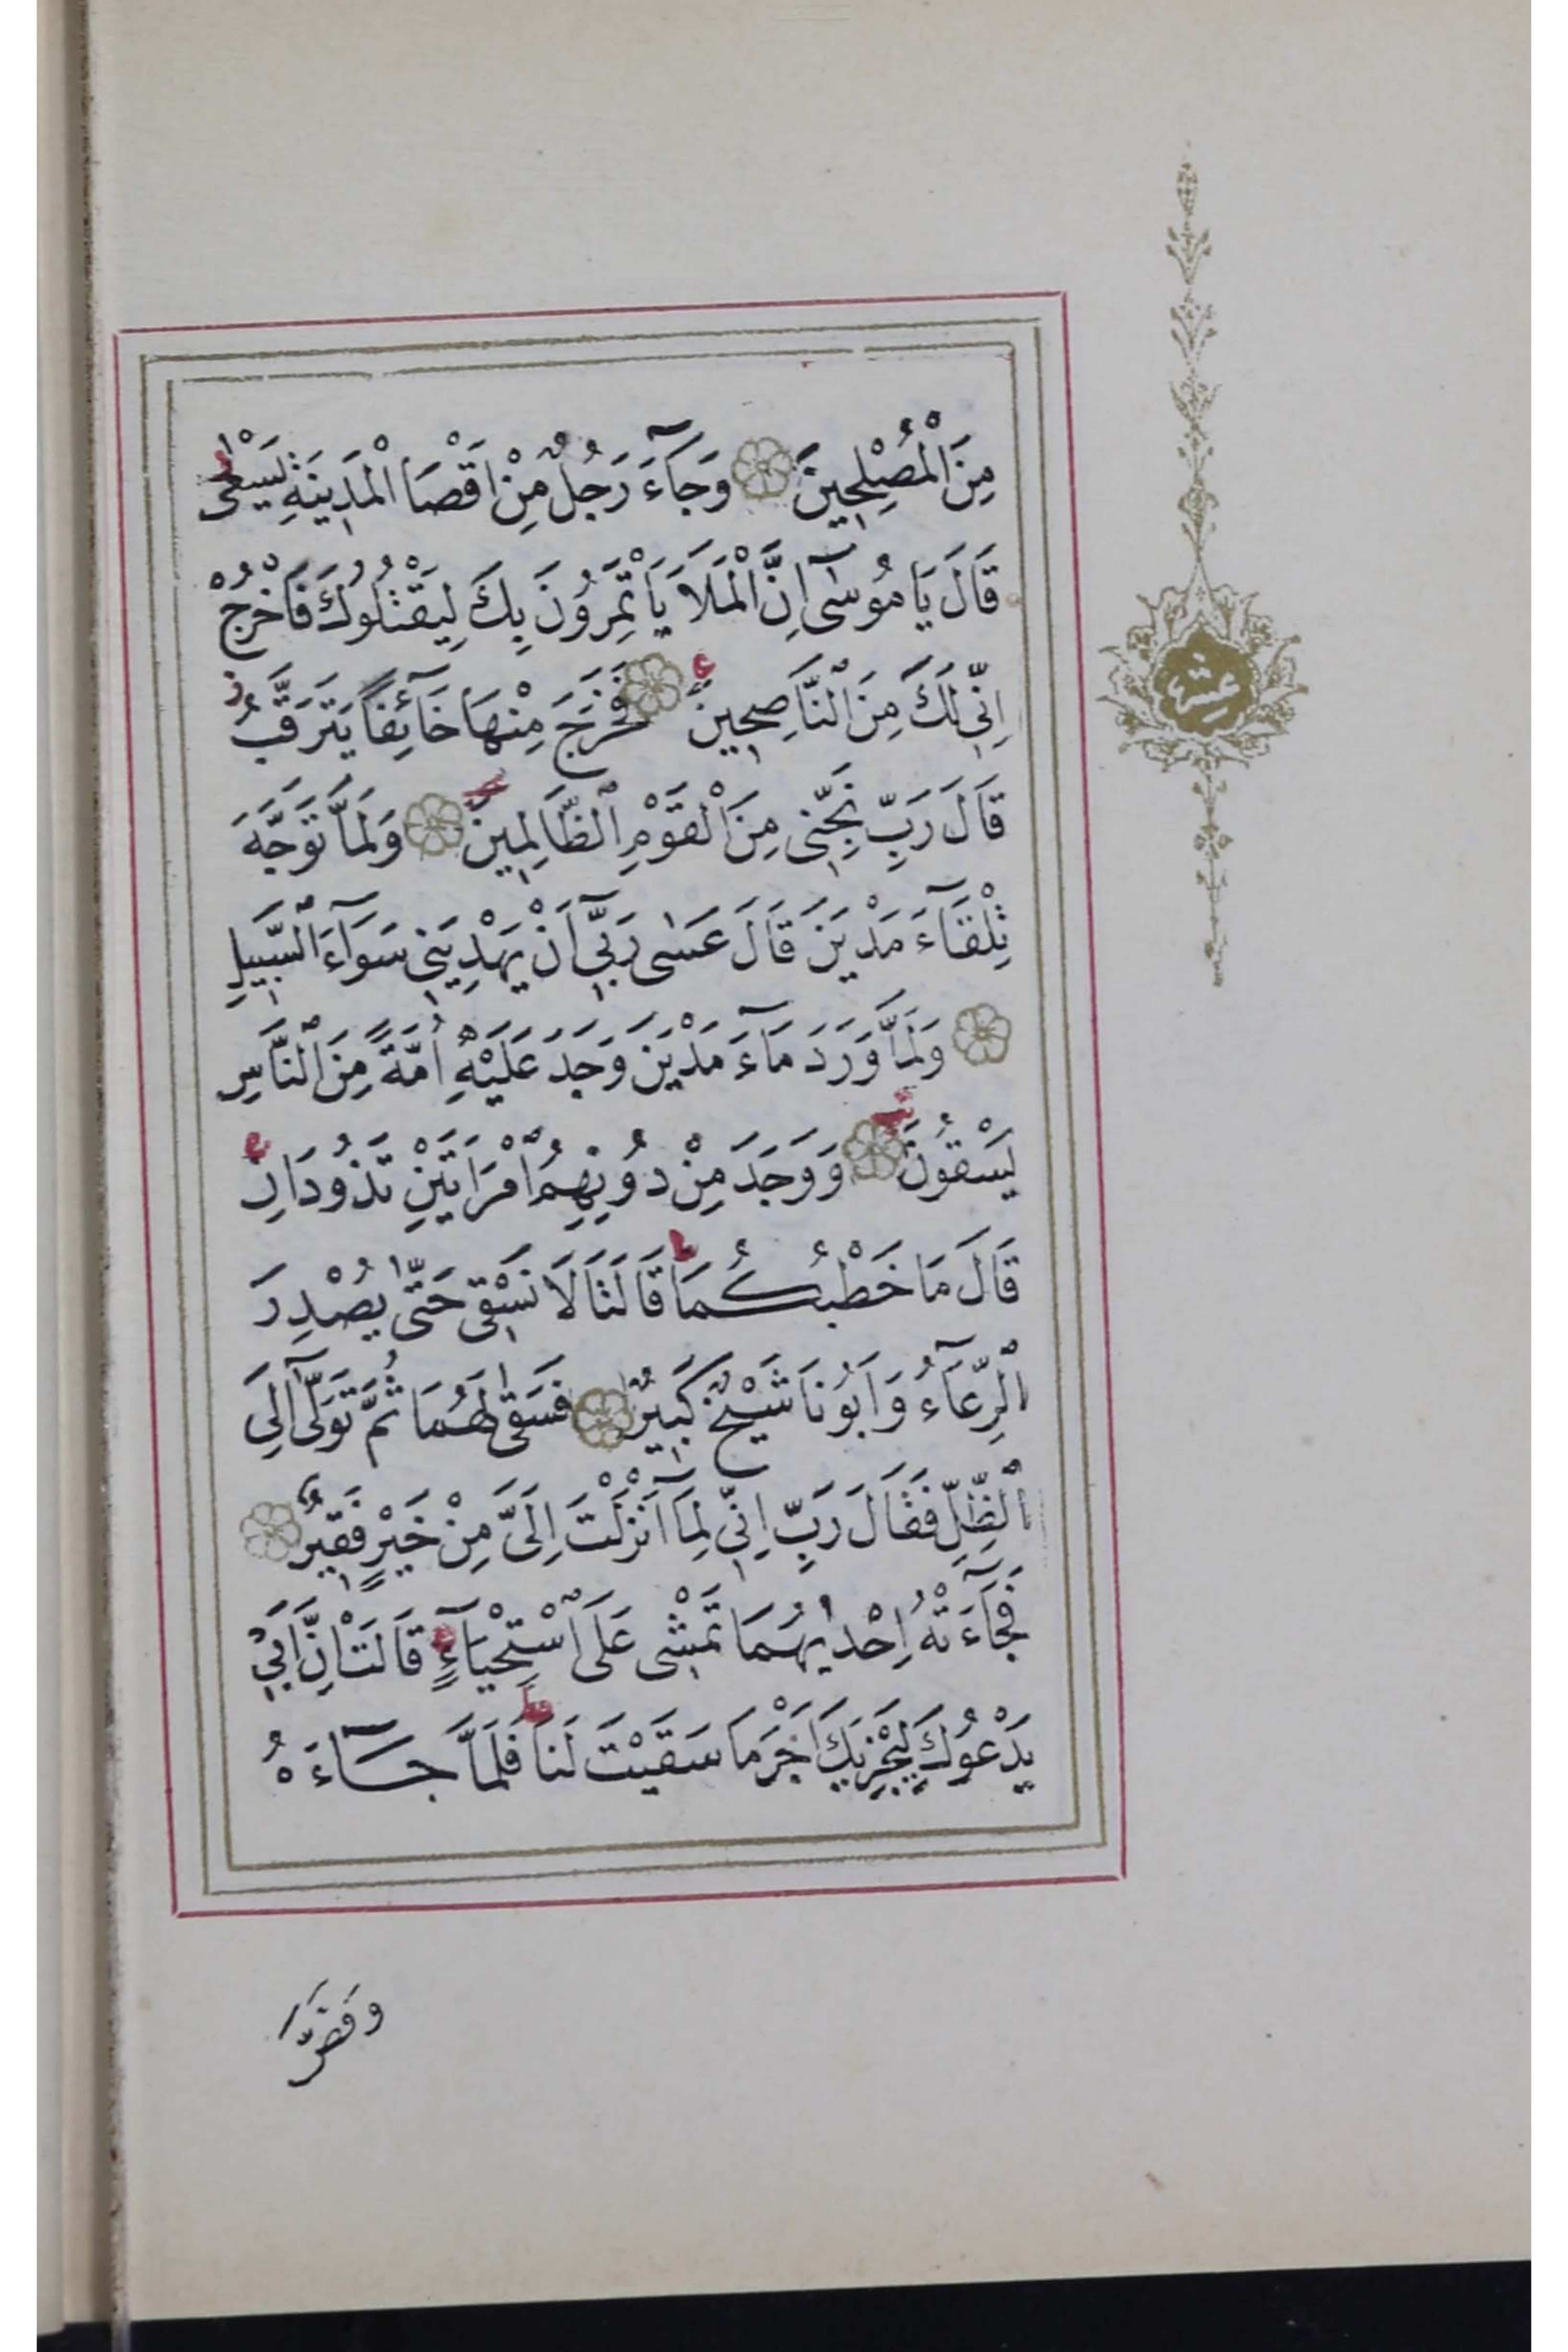 مِنَ الْمُصْلِحِينَ وَجَآءَ رَجُلٌ مِنْ اَقْصَا الْمَدِينَةِ يَسْعٰى
قَالَ يَا مُوسٰٓى اِنَّ الْمَلَاَ يَأْتَمِرُونَ بِكَ لِيَقْتُلُوكَ فَاخْرُجْ
اِنِّى لَكَ مِنَ النَّاصِحِينَ فَخَرَجَ مِنْهَا خَآئِفًا يَتَرَقَّبُ
قَالَ رَبِّ نَجِّنِى مِنَ الْقَوْمِ الظَّالِمِينَ وَلَمَّا تَوَجَّهَ
تِلْقَآءَ مَدْيَنَ قَالَ عَسٰى رَبِّىٓ اَنْ يَهْدِيَنِى سَوَآءَ السَّبِيلِ
وَلَمَّا وَرَدَ مَآءَ مَدْيَنَ وَجَدَ عَلَيْهِ اُمَّةً مِنَ النَّاسِ
يَسْقُونَ وَوَجَدَ مِنْ دُونِهِمُ امْرَاَتَيْنِ تَذُودَانِ
قَالَ مَا خَطْبُكُمَا قَالَتَا لَا نَسْقِى حَتّٰى يُصْدِرَ
الرِّعَآءُ وَاَبُونَا شَيْخٌ كَبِيرٌ فَسَقٰى لَهُمَا ثُمَّ تَوَلّٰٓى اِلَى
الظِّلِّ فَقَالَ رَبِّ اِنِّى لِمَآ اَنْزَلْتَ اِلَىَّ مِنْ خَيْرٍ فَقِيرٌ
فَجَآءَتْهُ اِحْدٰيهُمَا تَمْشِى عَلَى اسْتِحْيَآءٍ قَالَتْ اِنَّ اَبِى
يَدْعُوكَ لِيَجْزِيَكَ اَجْرَ مَا سَقَيْتَ لَنَا فَلَمَّا جَآءَهُ
وَقَصَّ